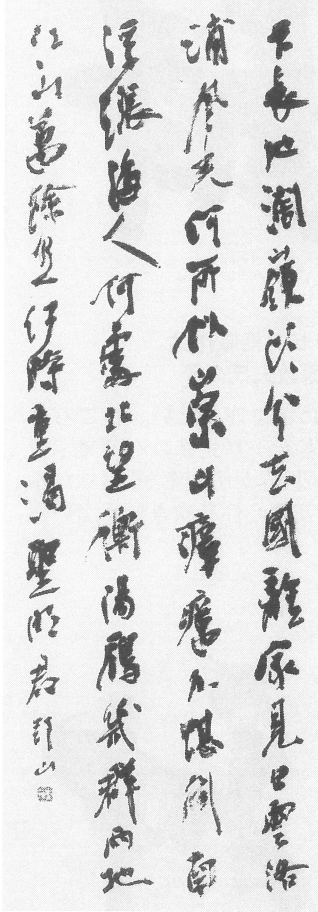 天長地闊嶺頭分去國離家見白雲洛
浦風光何所似崇山瘴癘不堪聞南
浮漲海人何處北望衡陽鴈幾群兩地
江山萬餘里何時重謁聖明君